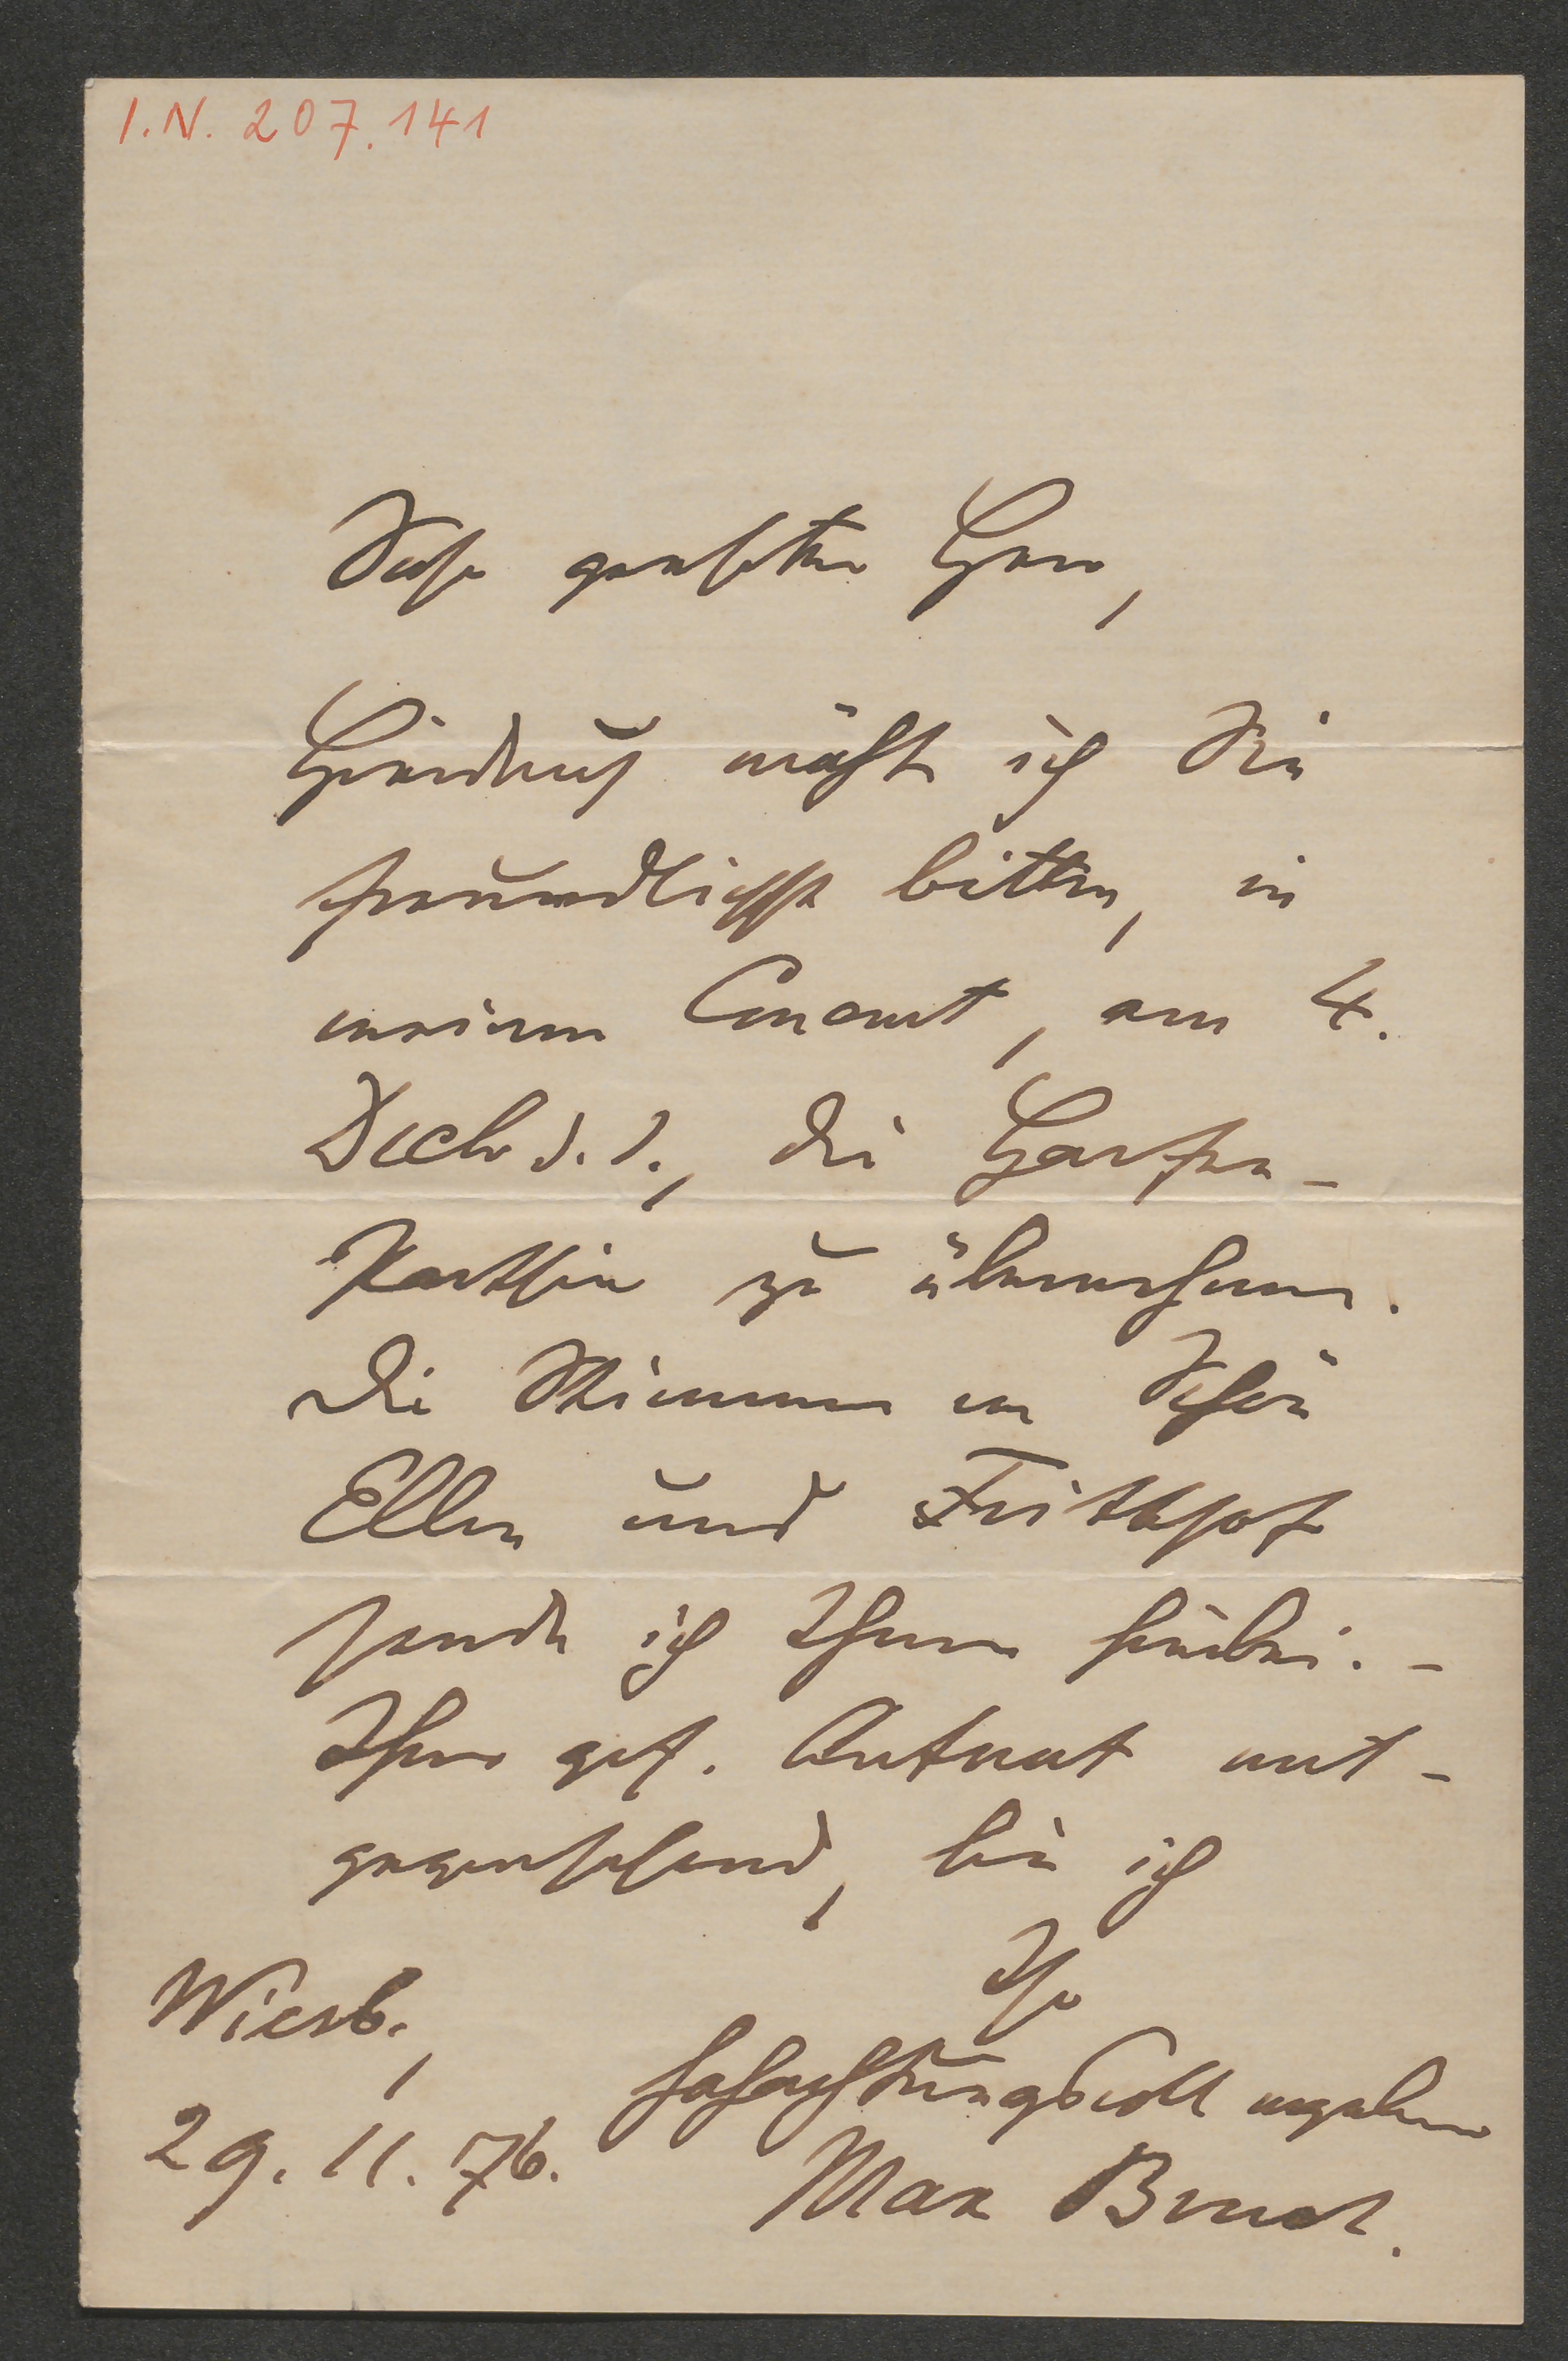 I.N. 207.141
Sehr geehrter Herr,
Hierdurch möchte ich Sie
freundlichst bitten, in
meinem Concert, am 4.
Decbr d. J., die Harfen-
Parthie zu übernehmen.
Die Stimmen von Schön
Ellen und Frithjof
sende ich Ihnen hierbei. –
Ihrer gef. Antwort ent-
gegensehend, bin ich
Ihr
Wiesb.,
hochachtungsvoll ergebner
29. 11. 76.
Max Bruch.